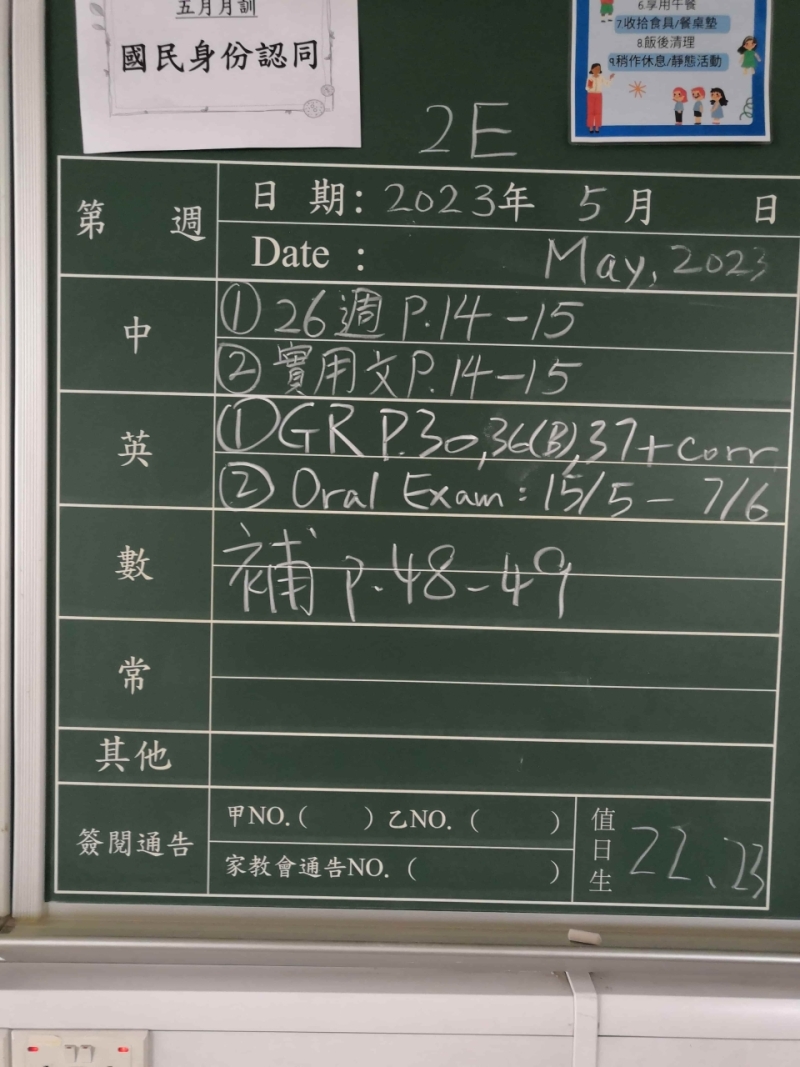 五月月訓
國民身份認同
6.享用午餐
7.收拾食具/餐桌墊
8.飯後清理
9.稍作休息/靜態活動
2E
第 週
日 期: 2023年 5月 日
Date : May, 2023
中
① 26週 P.14-15
② 實用文 P.14-15
英
① GR P.30,36(B),37+corr.
② Oral Exam: 15/5 - 7/6
數
補 P.48-49
常
其他
簽閱通告
甲NO.( ) 乙NO.( )
家教會通告NO.( )
值日生
22、23